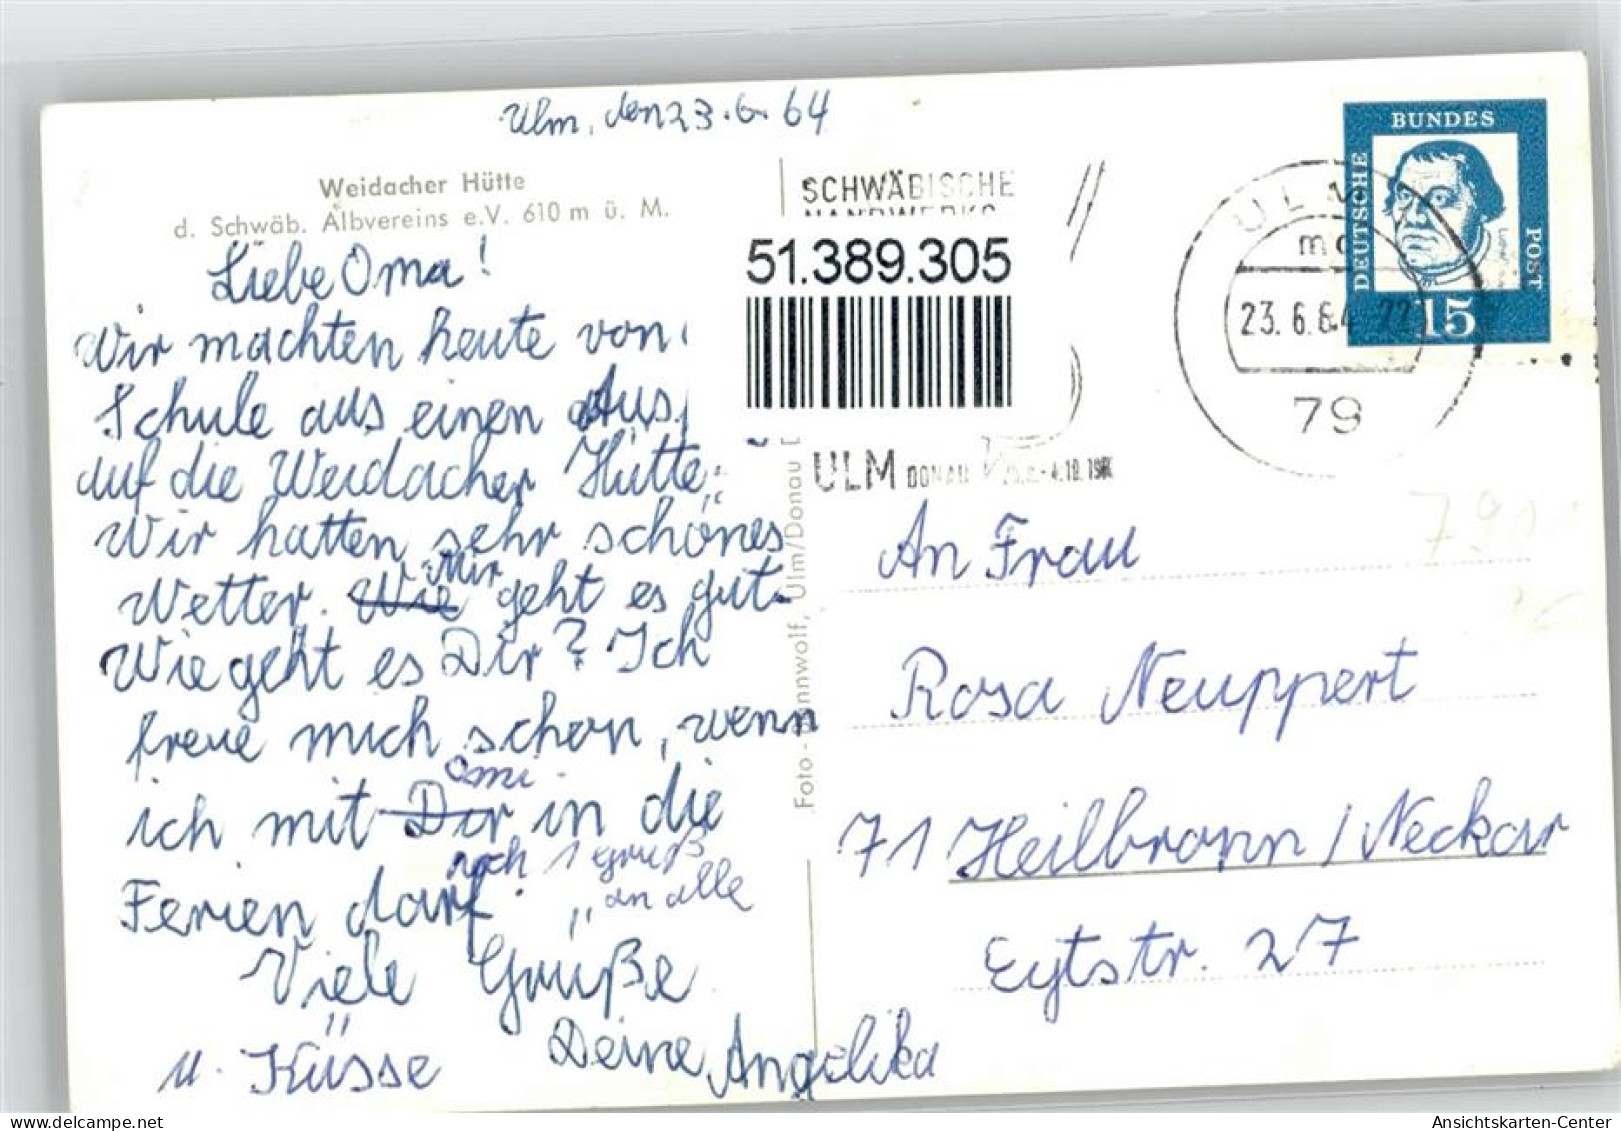 Ulm, den 23.6.64
Weidacher Hütte
d. Schwäb. Albvereins e.V. 610 m ü. M.
Liebe Oma!
Wir machten heute von
Schule aus einen Aus
auf die Weidacher Hütte.
Wir hatten sehr schönes
Wetter. Wie Mir geht es gut.
Wie geht es Dir? Ich
freue mich schon, wenn
ich mit Dir Omi in die
Ferien darf.
noch 1 Gruß
an alle
Viele Grüße
u. Küsse
Deine Angelika
Foto - Wannwolf, Ulm/Donau
SCHWÄBISCHE
51.389.305
ULM DONAU
ULM
23.6.64
79
DEUTSCHE
BUNDES
POST
15
An Frau
Rosa Neuppert
71 Heilbronn/Neckar
Eytstr. 27
Ansichtskarten-Center